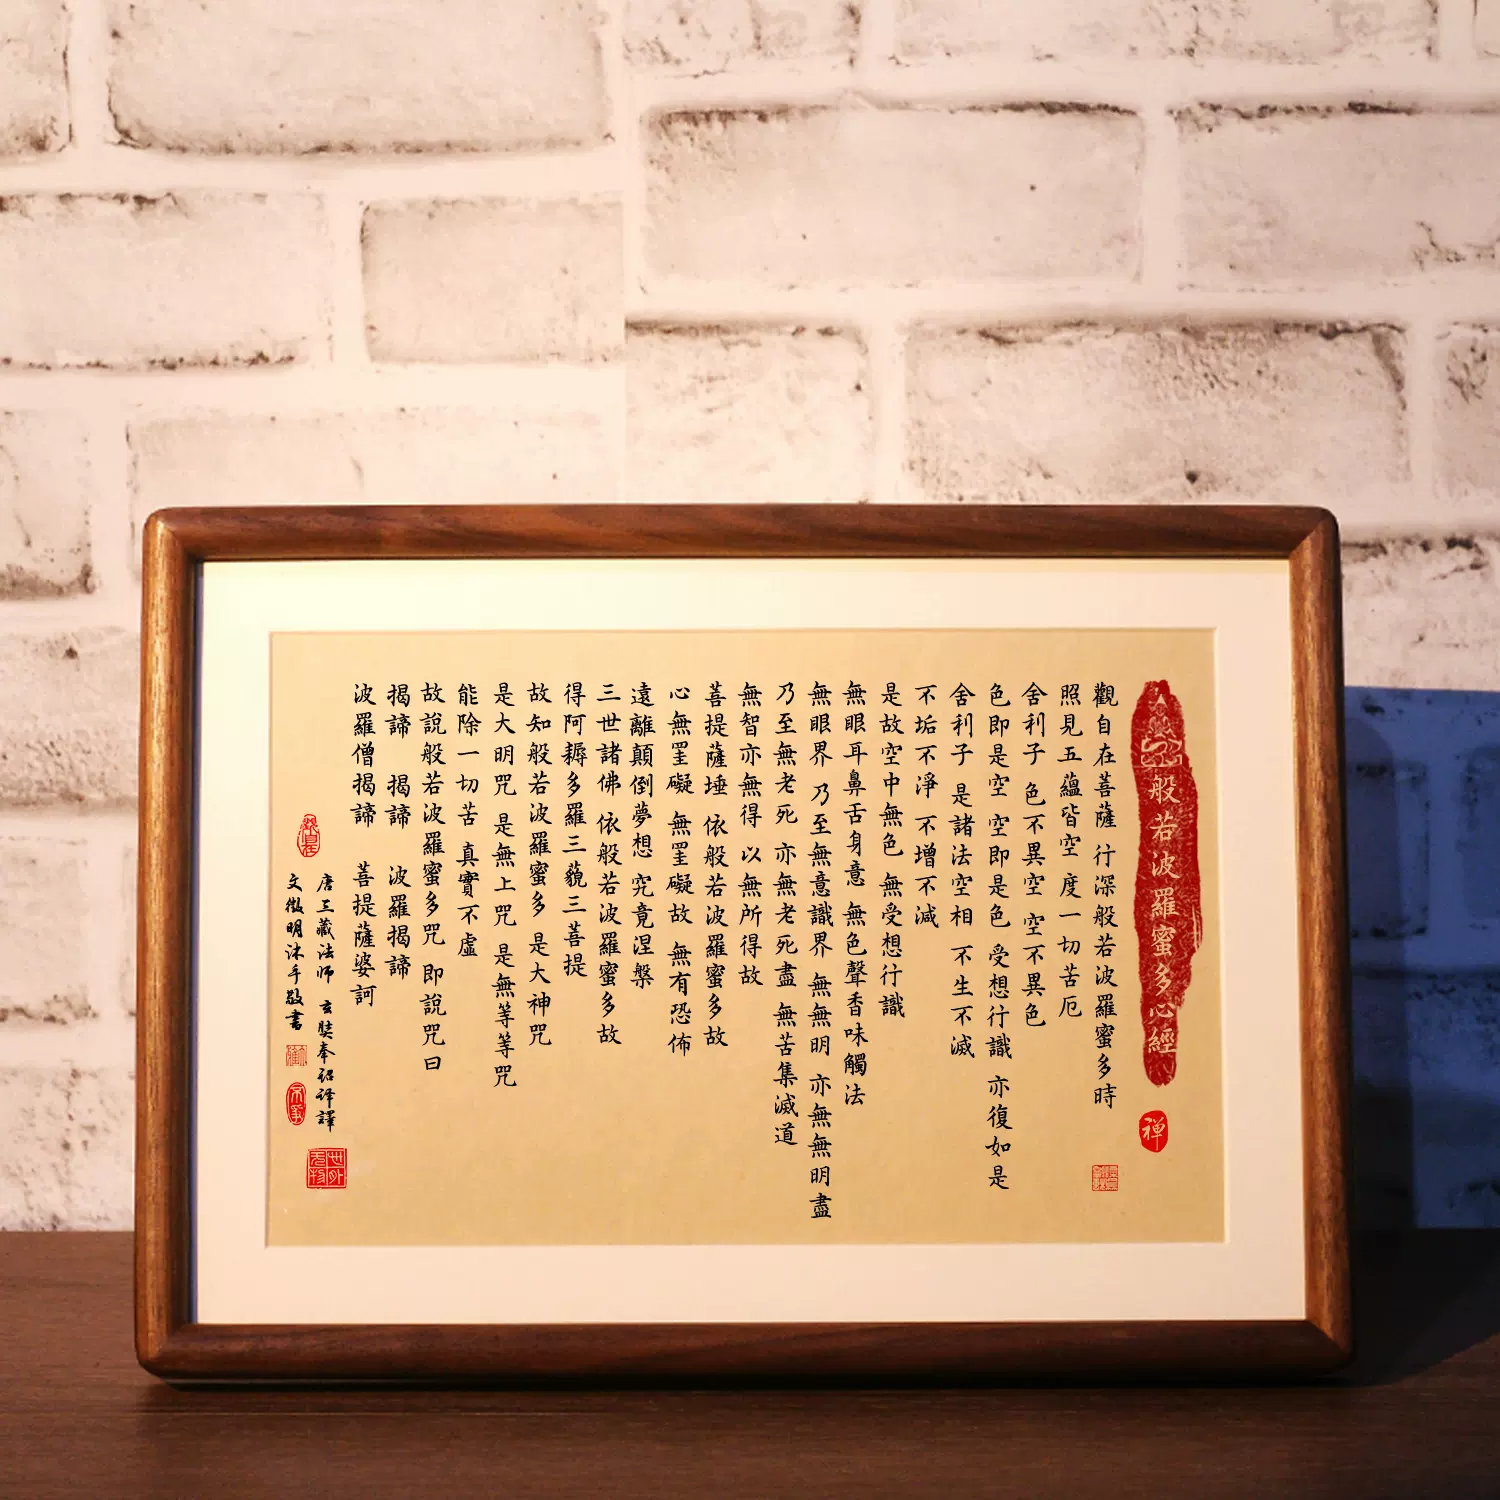 般若波羅蜜多心經
禅
觀自在菩薩行深般若波羅蜜多時
照見五蘊皆空 度一切苦厄
舍利子 色不異空 空不異色
色即是空 空即是色 受想行識 亦復如是
舍利子 是諸法空相 不生不滅
不垢不淨 不增不減
是故空中無色 無受想行識
無眼耳鼻舌身意 無色聲香味觸法
無眼界 乃至無意識界 無無明 亦無無明盡
乃至無老死 亦無老死盡 無苦集滅道
無智亦無得 以無所得故
菩提薩埵 依般若波羅蜜多故
心無罣礙 無罣礙故 無有恐怖
遠離顛倒夢想 究竟涅槃
三世諸佛 依般若波羅蜜多故
得阿耨多羅三藐三菩提
故知般若波羅蜜多 是大神咒
是大明咒 是無上咒 是無等等咒
能除一切苦 真實不虛
故說般若波羅蜜多咒 即說咒曰
揭諦 揭諦 波羅揭諦
波羅僧揭諦 菩提薩婆訶
唐三藏法師 玄奘奉詔译譯
文徵明沐手敬書